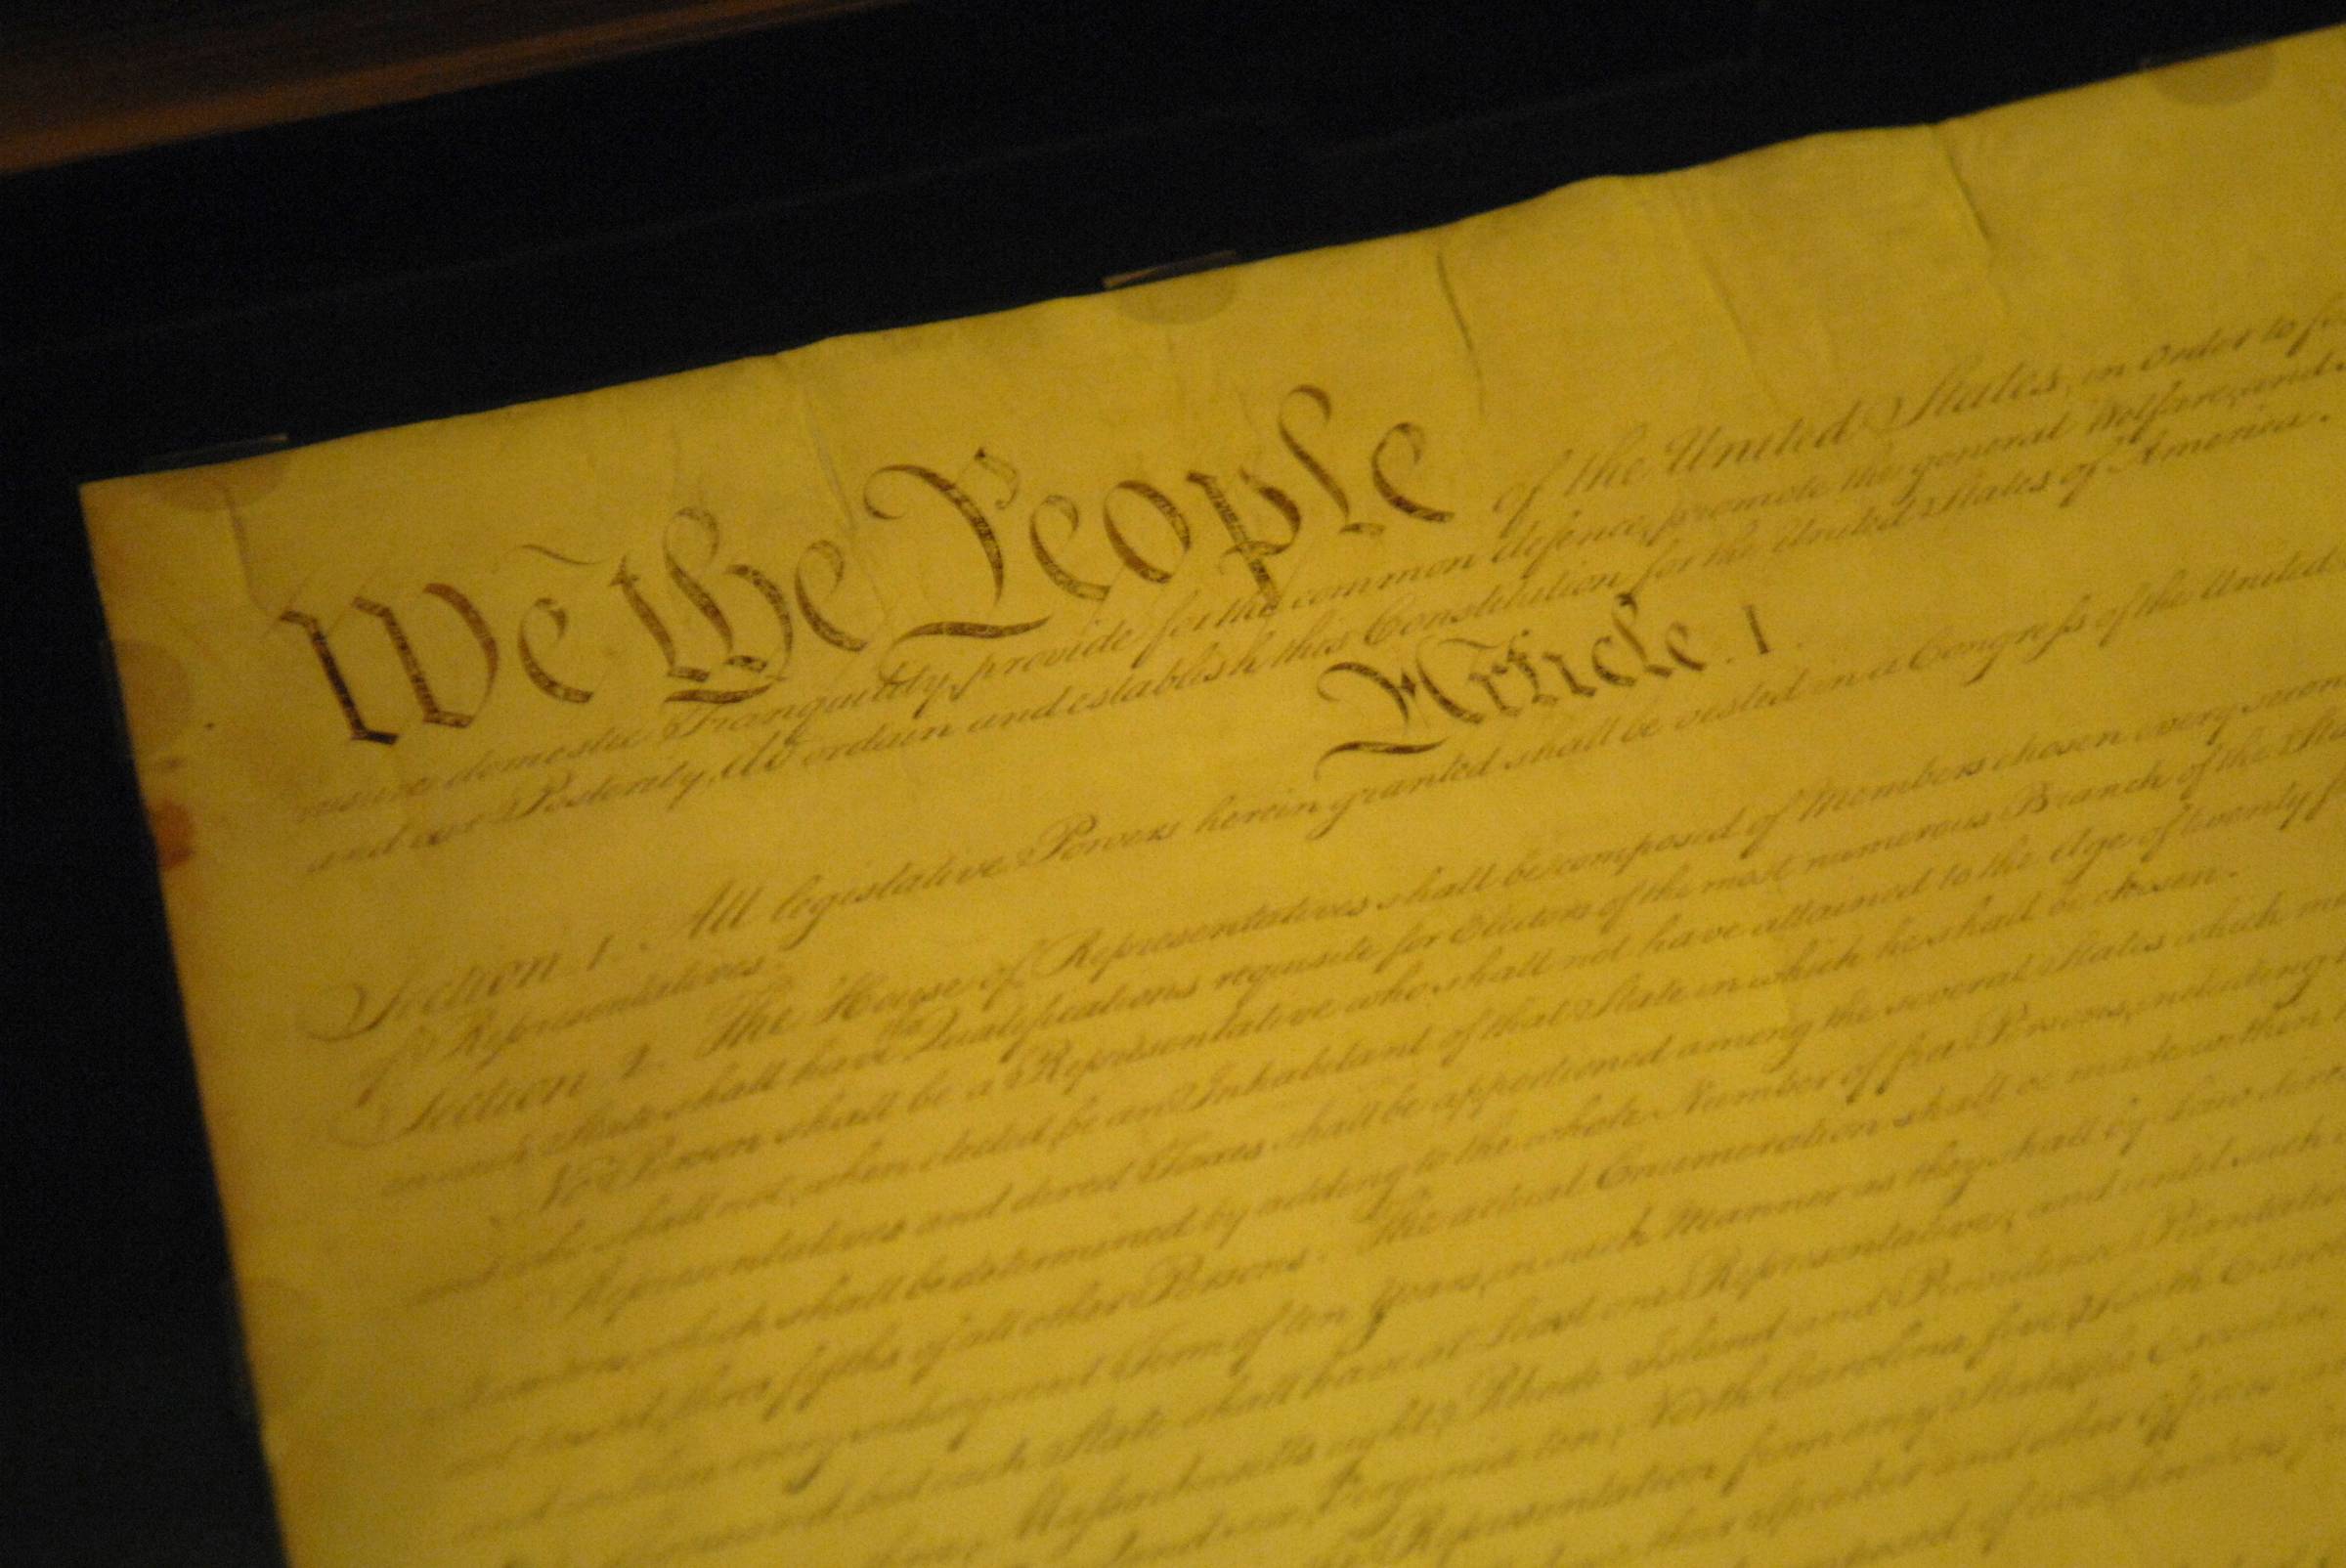 We the People of the United States, in Order to
insure domestic Tranquility, provide for the common defence, promote the general Welfare, and
and our Posterity, do ordain and establish this Constitution for the United States of America.
Article. I.
Section 1. All legislative Powers herein granted shall be vested in a Congress of the United
of Representatives.
Section 2. The House of Representatives shall be composed of Members chosen every second
in each State shall have the Qualifications requisite for Electors of the most numerous Branch of the
No Person shall be a Representative who shall not have attained to the Age of twenty
and who shall not, when elected, be an Inhabitant of that State in which he shall be chosen.
Representatives and direct Taxes shall be apportioned among the several States which
which shall be determined by adding to the whole Number of free Persons, including
three fifths of all other Persons. The actual Enumeration shall be made within
and within every subsequent Term of ten Years, in such Manner as they shall by Law
but each State shall have at Least one Representative; and until such
Massachusetts eight, Rhode Island and Providence Plantations
Virginia ten, North Carolina five, South
Representation from any State, the Executive
Speaker and other Officers
composed of two Senators